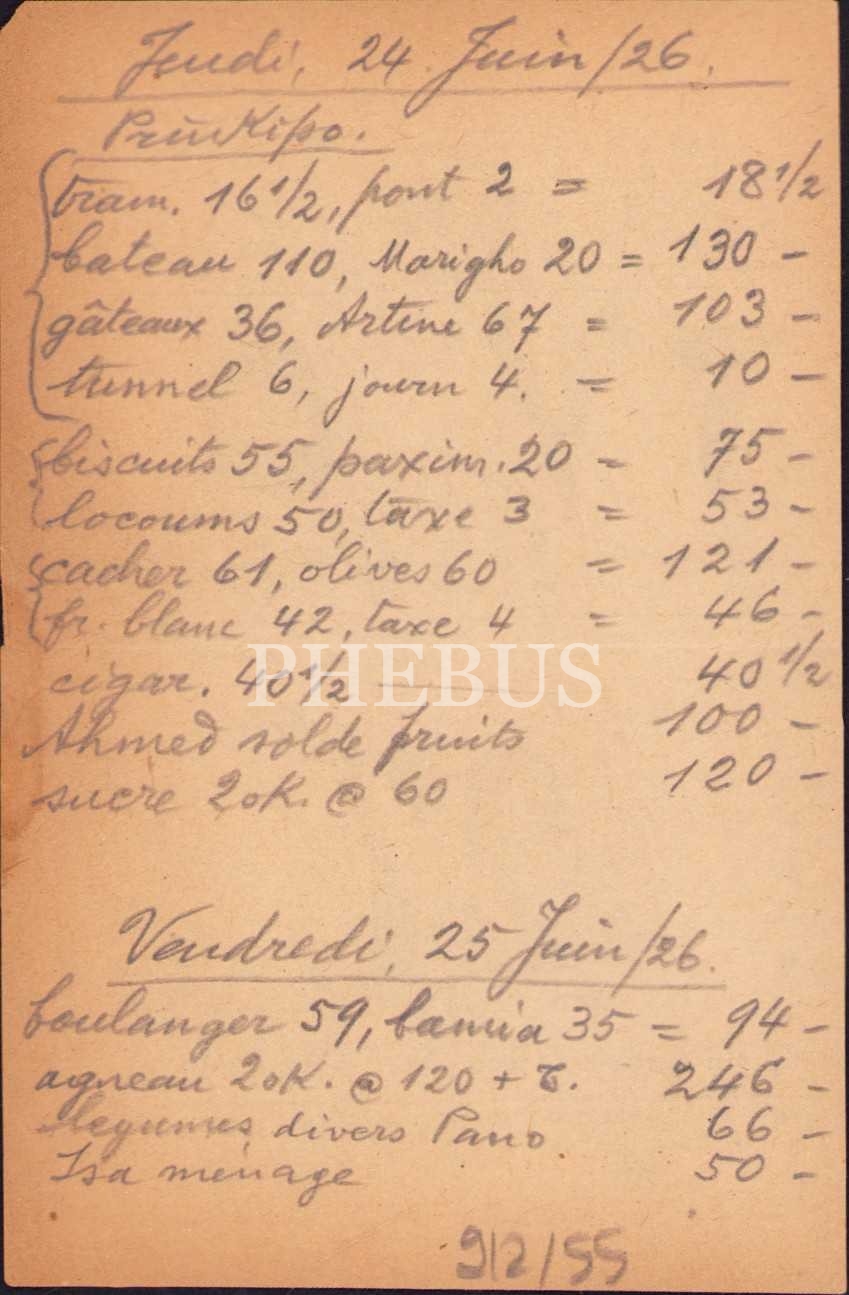 Jeudi, 24 Juin/26.
Prinkipo.
tram. 16 1/2, pont 2 = 18 1/2
bateau 110, Marigho 20 = 130 -
gâteaux 36, Artine 67 = 103 -
tunnel 6, journ 4. = 10 -
biscuits 55, paxim. 20 = 75 -
locoums 50, taxe 3 = 53 -
cacher 61, olives 60 = 121 -
fr. blanc 42, taxe 4 = 46 -
PHEBUS
cigar. 40 1/2 — 40 1/2
Ahmed solde fruits 100 -
sucre 2 oK. @ 60 120 -
Vendredi, 25 Juin/26.
boulanger 59, bamia 35 = 94 -
agneau 2 oK. @ 120 + t. 246 -
légumes divers Pano 66 -
Isa ménage 50 -
912/55